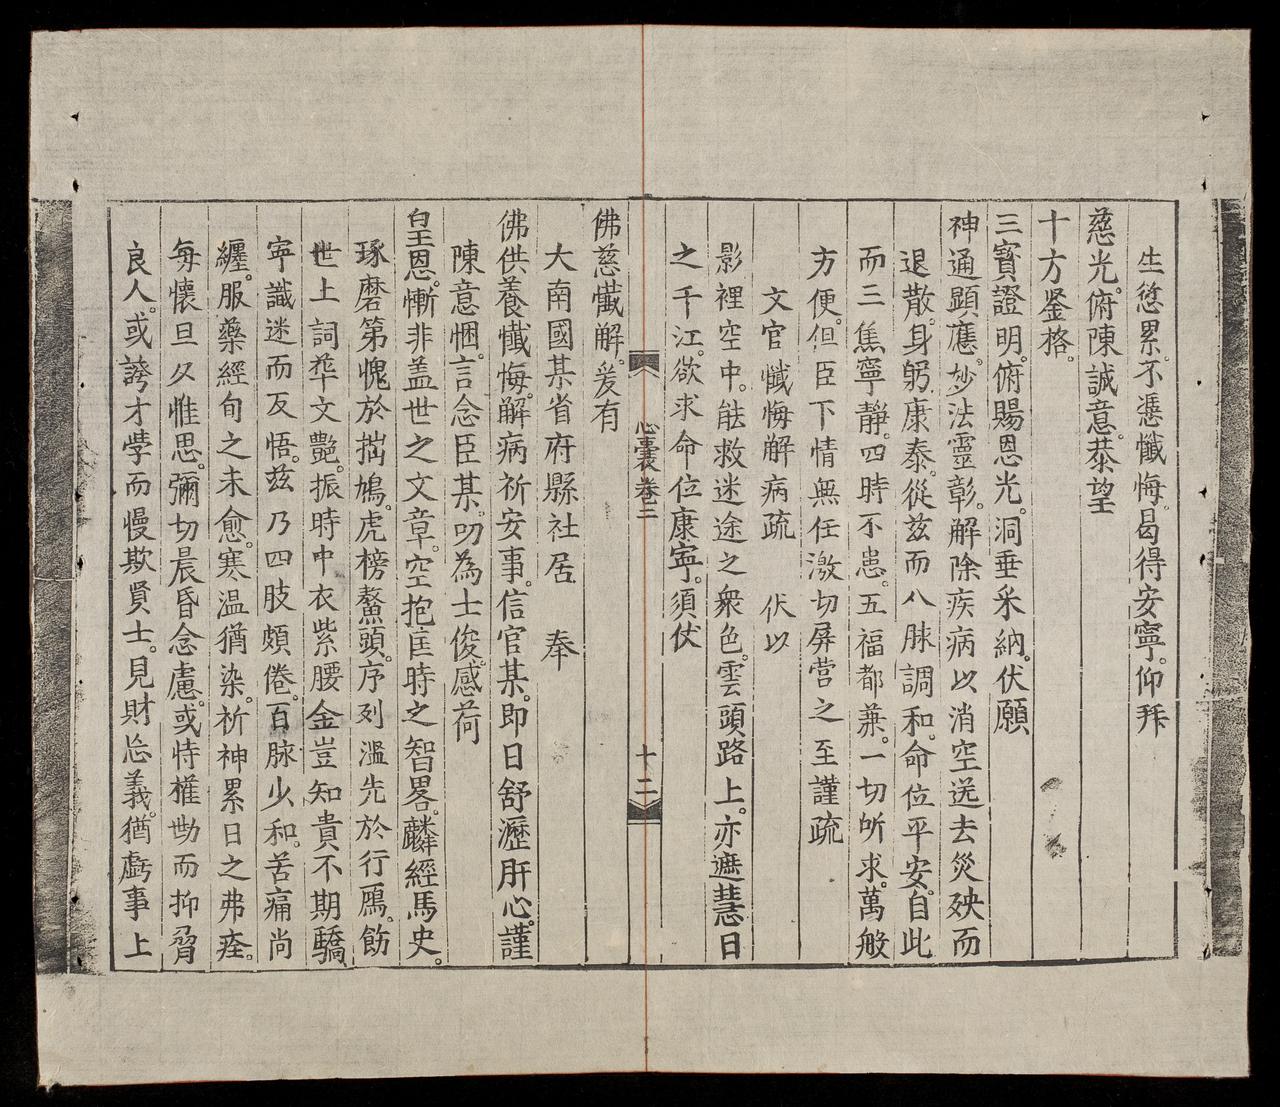 生愆累。不憑懺悔。曷得安寧。仰拜
慈光。俯陳誠意。恭望
十方鉴格。
三寳證明。俯賜恩光。洞垂采納。伏願
神通顕應。妙法靈彰。解除疾病以消空。送去災殃而
退散。身躬康泰。從兹而八脉調和。命位平安。自此
而三焦寧靜。四時不患。五福都兼。一切所求。萬般
方便。但臣下情無任激切屏营之至謹疏
文官懺悔解病疏　伏以
影裡空中。能救迷途之衆色。雲頭路上。亦遮慧日
之千江。欲求命位康寧。須仗
心囊卷二
十二
佛慈懺解。爰有
大南國某省府縣社居　奉
佛供養懺悔。解病祈安事。信官某。即日舒瀝肝心。謹
陳意悃。言念臣某。叨為士俊。感荷
皇恩。慚非盖世之文章。空抱匡時之智畧。麟經馬史。
琢磨第愧於拙鳩。虎榜鰲頭。序列濫先於行鴈。飭
世上詞華文艶。振時中衣紫腰金豈知貴不期驕
寕識迷而反悟。兹乃四肢頗倦。百脉少和。苦痛尚
纏。服藥經旬之未愈。寒温猶染。祈神累日之弗痊。
每懷旦夕惟思。彌切晨昏念慮。或恃權勢而抑脅
良人。或誇才學而慢欺賢士。見財忘義。猶虧事上